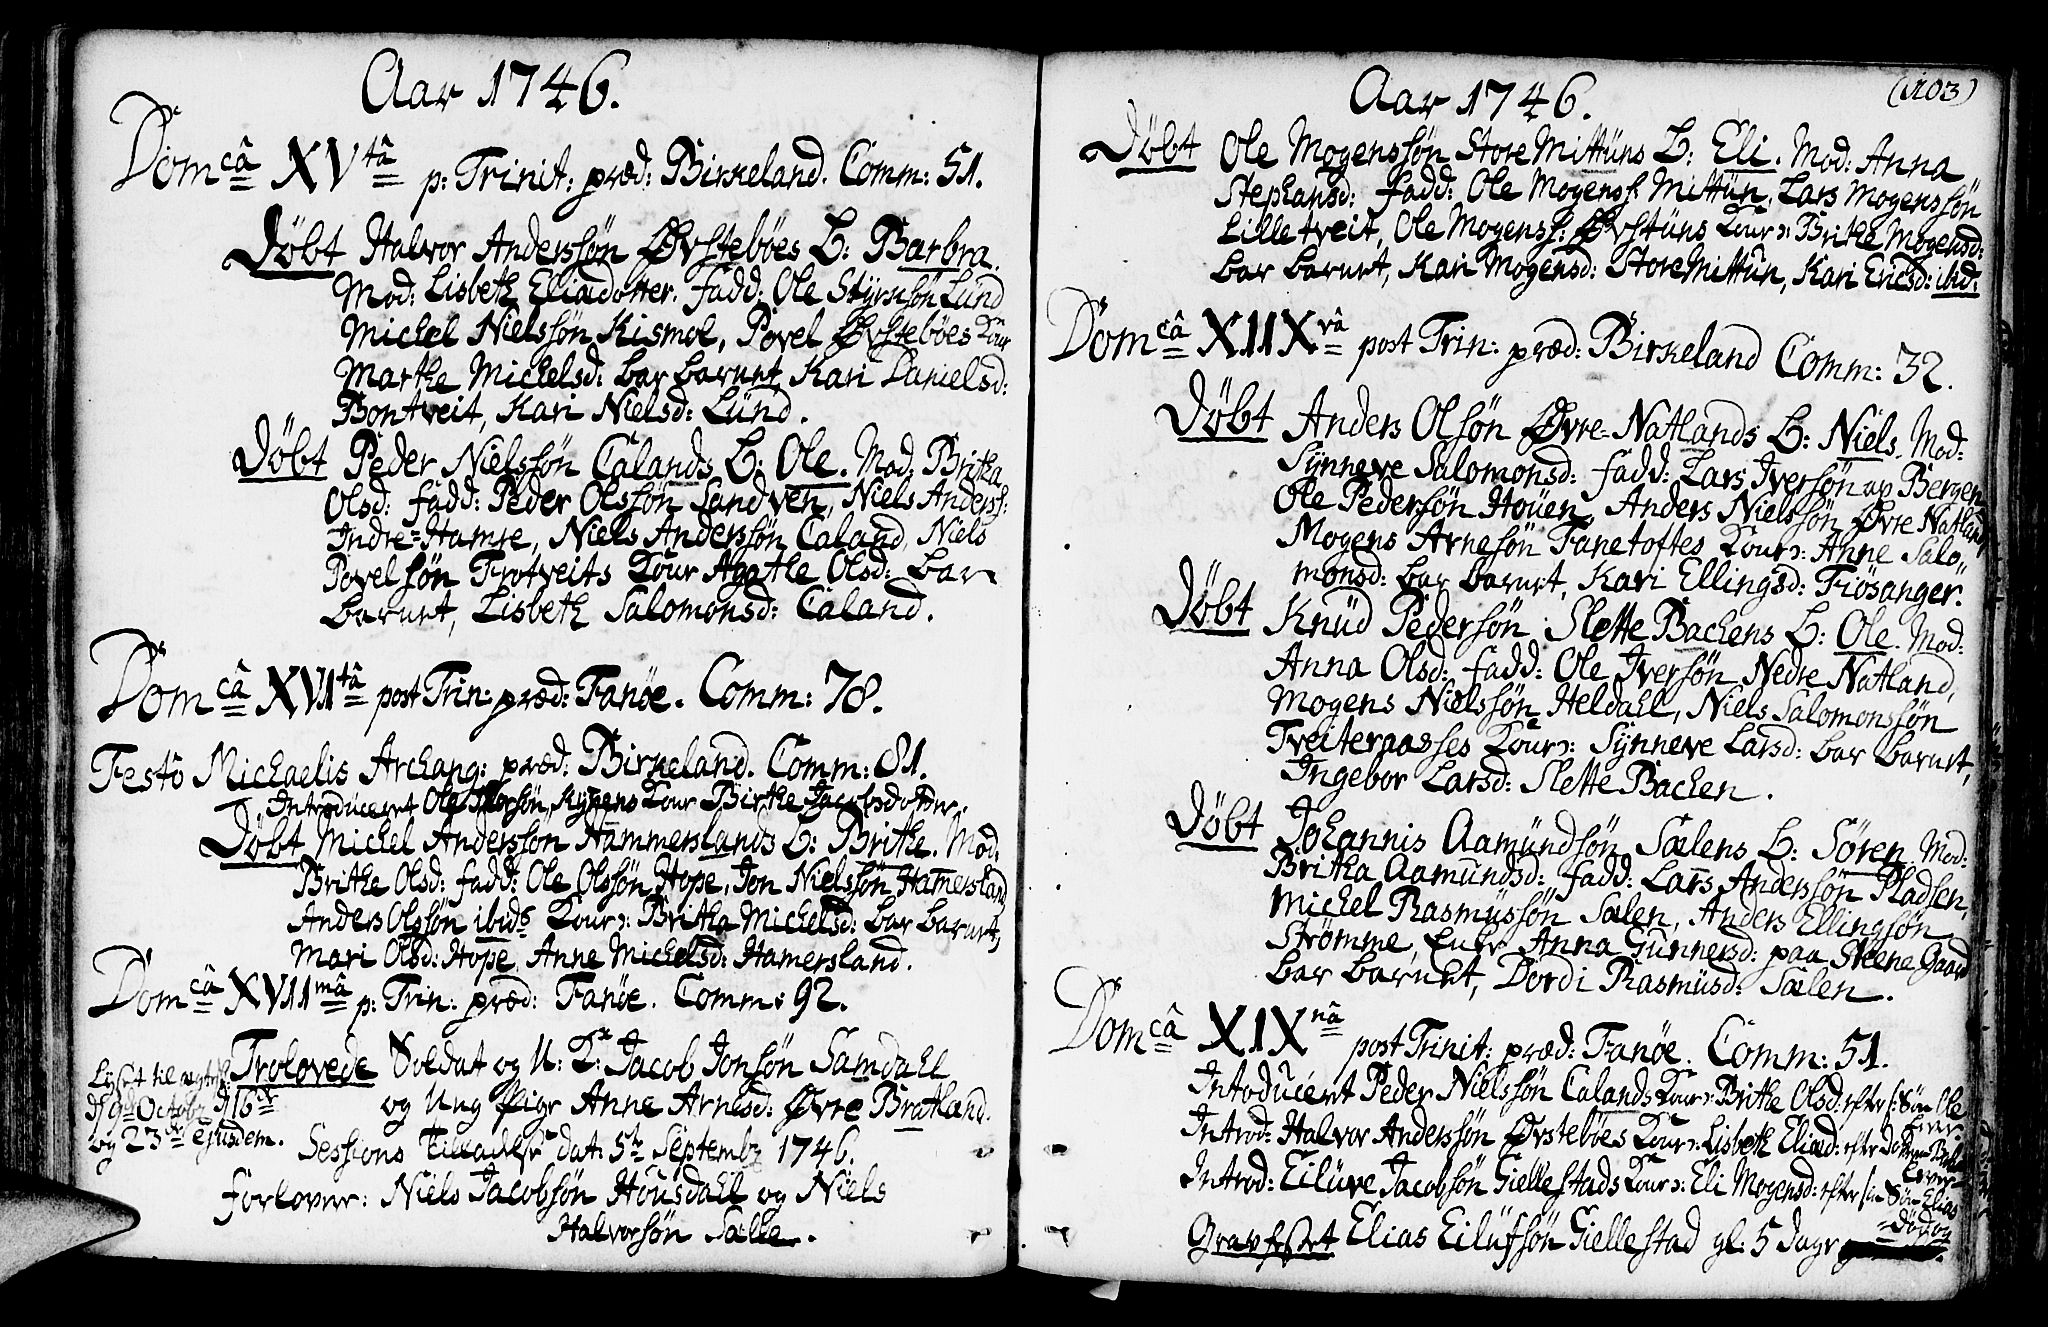 Aar 1746.
Domcâ XVtâ p: Trinit: præd: Birkeland. Comm: 51.
Döbt Halvor Anderssön Øvstebøes B: Barbra.
Mod: Lisbeth Eliædotter. fadd: Ole Styrssön Lund
Michel Nielssön Kismol, Povel Øvstebøes Kour
Marthe Michelsd: bar barnet, Kari Danielsd:
Bontveit, Kari Nielsd: Lünd.
Döbt Peder Nielssön Calands B: Ole. Mod: Britha
Olsd: fadd: Peder Olssön Sandven, Niels Anderss:
Indre-Hamre, Niels Anderssön Caland, Niels
Povelsön Trotveits Kour Agathe Olsd: bar
barnet, Lisbeth Salomonsd: Caland.
Domcâ XVItâ post Trin: præd: Fanøe. Comm: 78.
Festo Michaelis Archang: præd: Birkeland. Comm: 81.
Introduceret Ole Kour Birthe Jacobsdotter.
Döbt Michel Anderssön Hammerslands B: Brithe. Mod:
Brithe Olsd: fadd: Ole Olssön Hope, Jon Nielssön Hamersland
Anders Olssön ibid: Kour: Britha Michelsd: bar barnet,
Mari Olsd: Hope, Anne Michelsd: Hamersland.
Domcâ XVIImâ p: Trin: præd: Fanøe. Comm: 92.
Trolovede Soldat og U: K: Jacob Jonsön Samdahl
og Ung Pige Anne Arnesd: Øvre Bratland.
Lyst til
d 9 Octobr d 16de
og 23de ejusdem.
Sessions Tilladelse dat: 5te Septembr 1746.
Forlover: Niels Jacobsön Housdahl og Niels
Halvorsön Sælle.
Aar 1746.
(103)
Döbt Ole Mogenssön Store Mittüns B: Eli. Mod: Anna
Stephansd: fadd: Ole Mogenss: Mittün, Lars Mogenssön
Lilletveit, Ole Mogenss: Øvstüns Kour: Brithe Mogensd:
bar barnet, Kari Mogensd: Store Mittün, Kari Ericsd: ibid:
Domcâ XIIXvâ post Trin: præd: Birkeland Comm: 32.
Döbt Anders Olsön Øvre-Natlands B: Niels. Mod:
Synneve Salomonsd: fadd: Lars Iversön ap Bergen,
Ole Pedersön Houen, Anders Nielssön Øvre Natland
Mogens Arnesön Fanetoftes Kour: Anne Salo-
monsd: bar barnet, Kari Ellingsd: Fiösanger.
Döbt Knüd Pedersön Slette Bachens B: Ole. Mod:
Anna Olsd: fadd: Ole Iversön Nedre Natland,
Mogens Nielssön Heldahl, Niels Salomonssön
Tveiteraasses Kour: Synneve Larsd: bar barnet,
Ingebor Larsd: Slette Bachen.
Döbt Johannis Aamündsön Sælens B: Sören. Mod:
Britha Aamundsd: fadd: Lars Anderssön Pladsen,
Michel Rasmüssön Sælen, Anders Ellingsön
Strömme, Enke Anna Gunnersd: paa Steene Gaard
bar barnet, Dordi Rasmüsd: Sælen.
Domcâ XIXnâ post Trinit: præd: Fanøe. Comm: 51.
Introduceret Peder Nielssön Calands Kour: Brithe Olsd: efter s: Sön Ole
Introd: Halvor Anderssön Øvstebøes Kour: Lisbeth Eliæd: efter
Introd: Eilüve Jacobsön Giellestads Kour: Eli Mogensd: efter sin Sön Elias
Gravfestet Elias Eilüfsön Giellestad gl: 5 Dage
död og